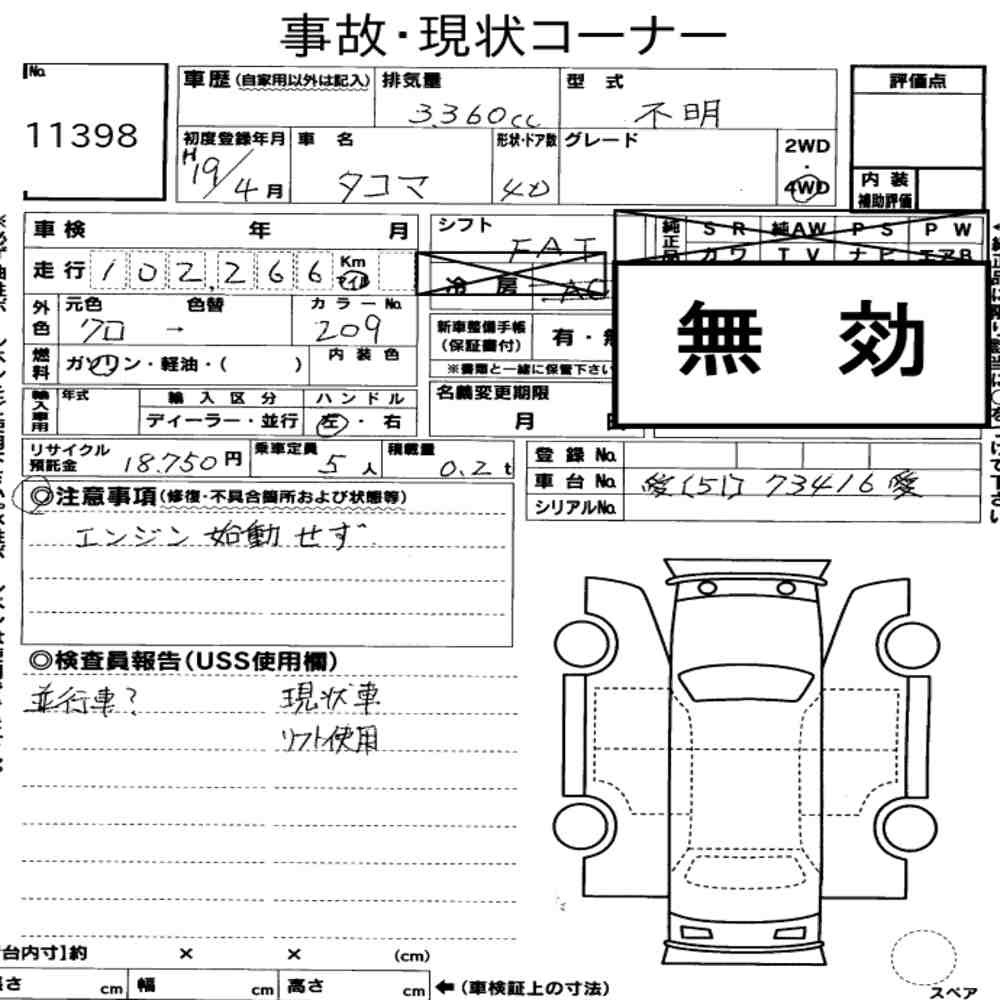 事故・現状コーナー
No.
11398
車歴(自家用以外は記入)
排気量
3,360cc
型式
不明
評価点
初度登録年月
H19/4月
車名
タコマ
形状・ドア数
4D
グレード
2WD
・
4WD
内装
補助評価
車検 年 月
走行 102,266 Km マイル
シフト
FAT
冷房
AC
純正品
SR 純AW PS PW
カワ TV ナビ エアB
無効
外色
元色 色替 カラーNo.
クロ → 209
燃料
ガソリン・軽油・( )
内装色
新車整備手帳
(保証書付)
有・
※書類と一緒に保管下さい
輸入車用
年式
輸入区分
ハンドル
ディーラー・並行
左・右
名義変更期限
月
リサイクル
預託金
18,750円
乗車定員
5人
積載量
0.2t
登録No.
車台No. 愛(51)73416愛
シリアルNo.
◎注意事項(修復・不具合箇所および状態等)
エンジン始動せず
◎検査員報告(USS使用欄)
並行車?
現状車
リフト使用
台内寸]約 × × (cm)
さ cm 幅 cm 高さ cm ←(車検証上の寸法)
スペア